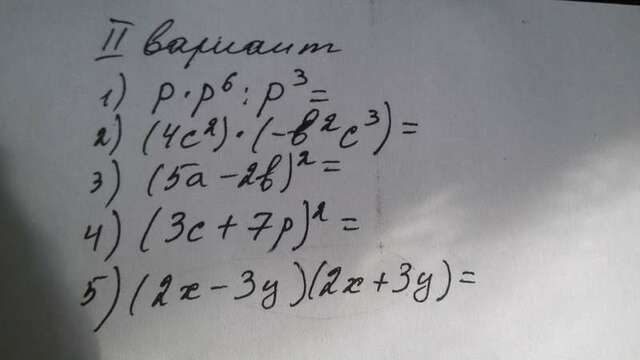 II вариант
1) p·p⁶:p³=
2) (4c²)·(-в²c³)=
3) (5a-2в)²=
4) (3c+7p)²=
5) (2x-3y)(2x+3y)=